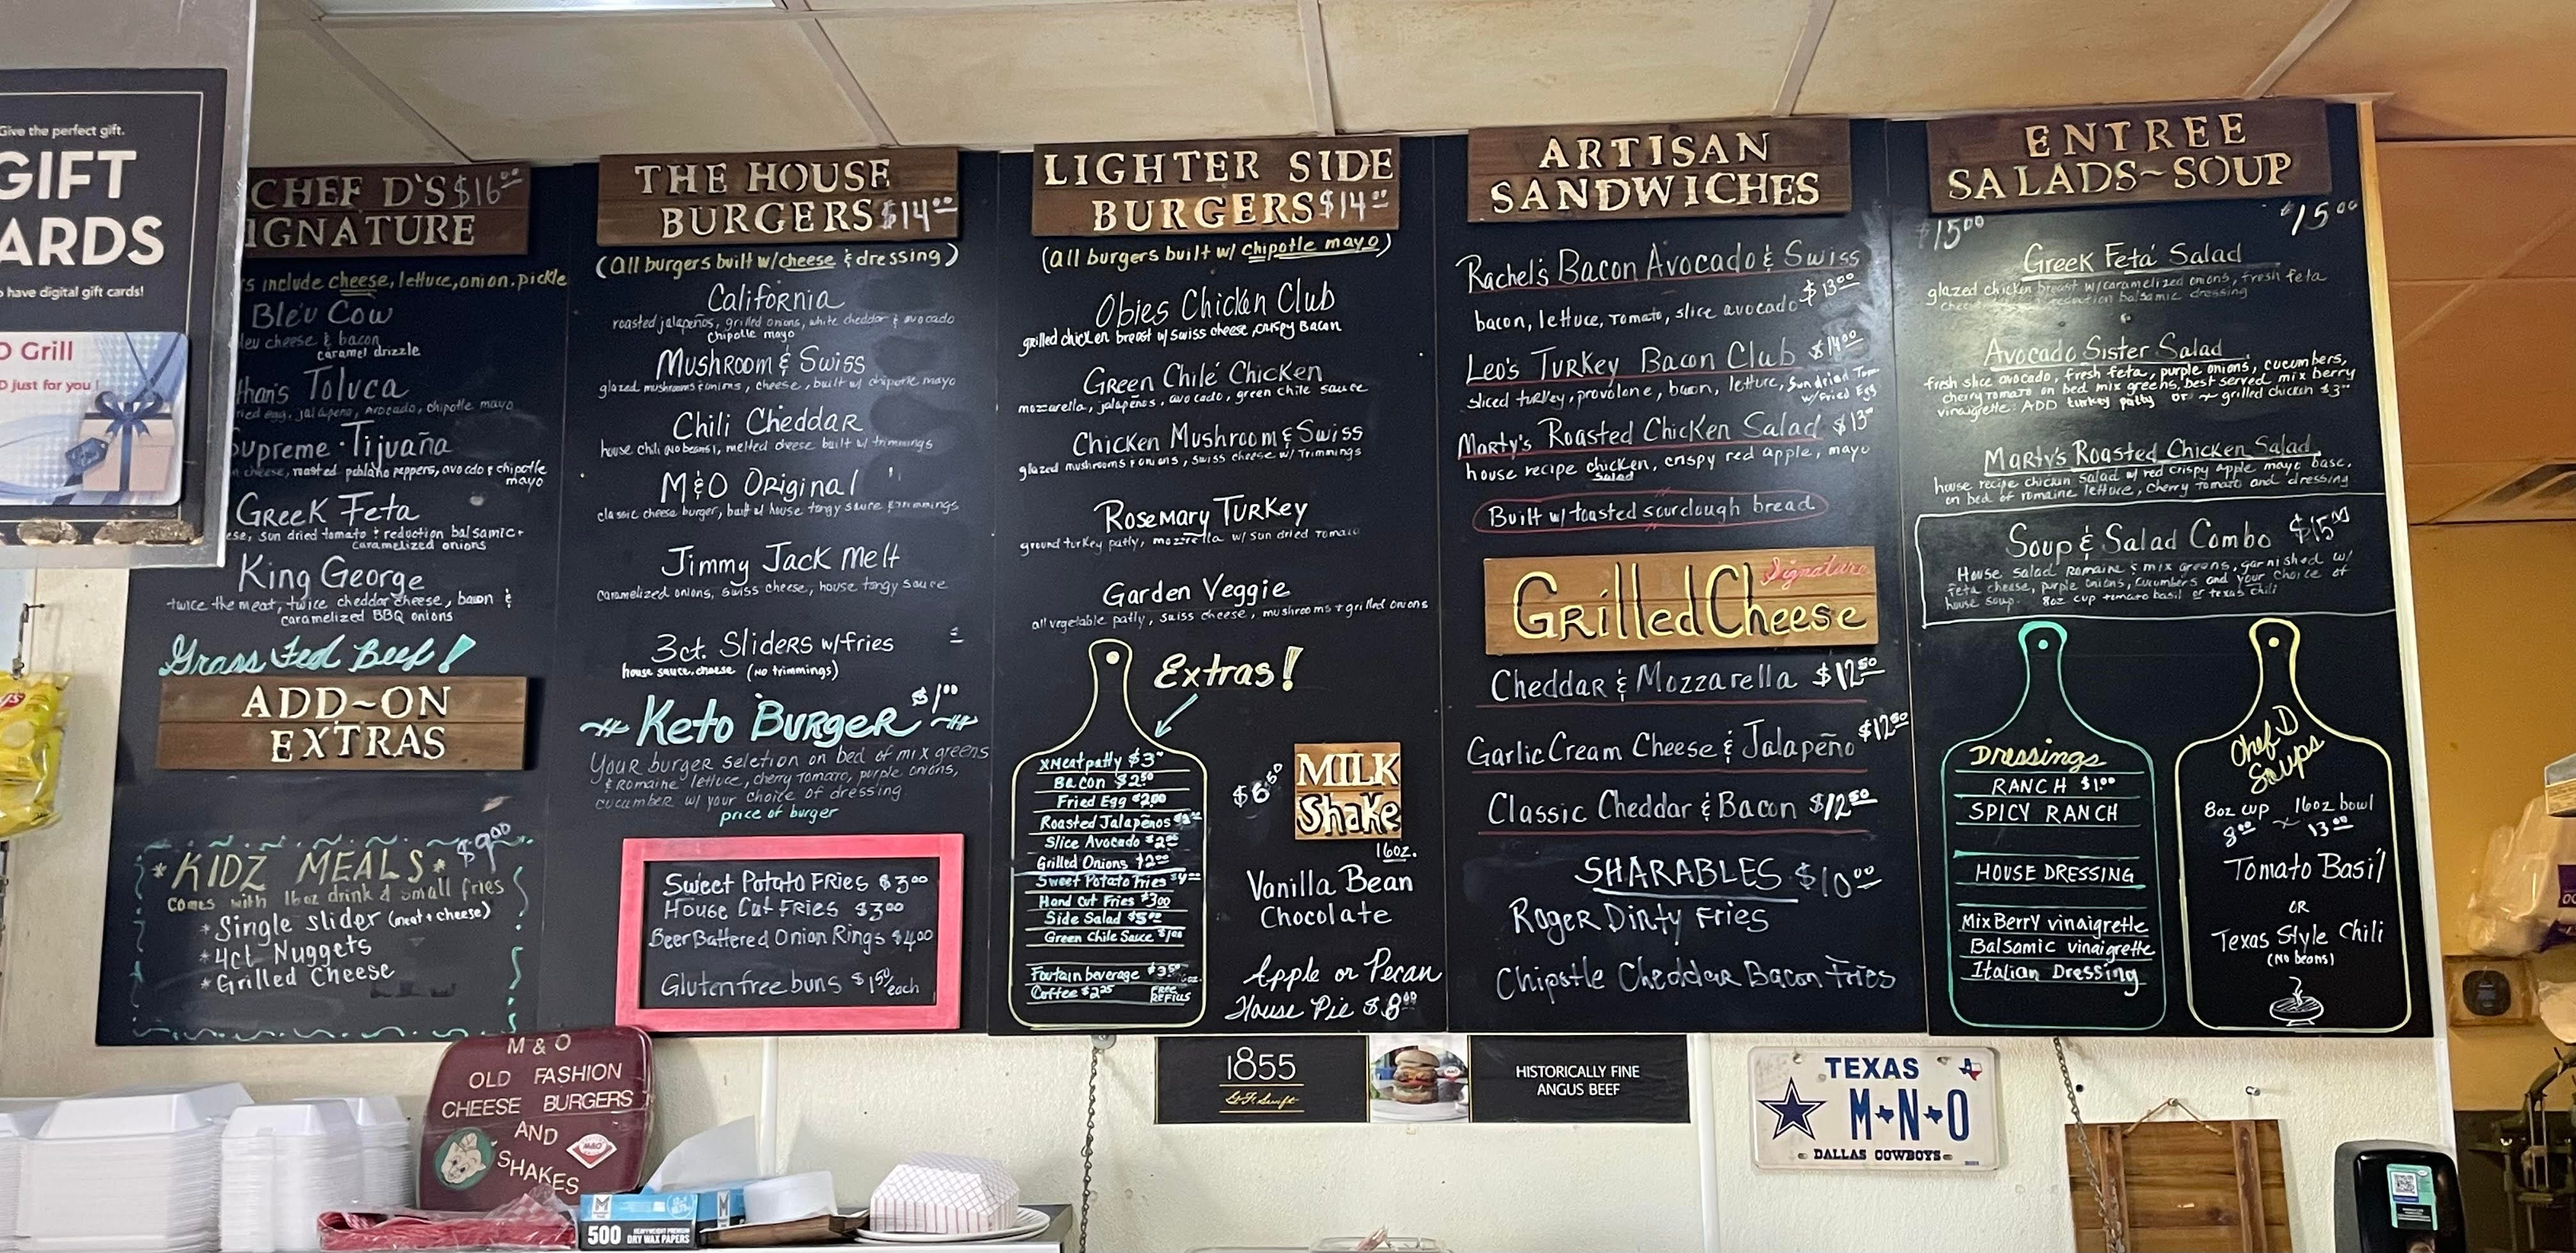 Give the perfect gift.
GIFT
ARDS
have digital gift cards!
D Grill
D just for you!
CHEF D'S $16⁰⁰
IGNATURE
s include cheese, lettuce, onion, pickle
Bleu Cow
leu cheese & bacon
caramel drizzle
than's Toluca
ried egg, jalapeno, avocado, chipotle mayo
Supreme · Tijuaña
cheese, roasted poblano peppers, avocado & chipotle
mayo
Greek Feta
ese, sun dried tomato & reduction balsamic +
caramelized onions
King George
twice the meat, twice cheddar cheese, bacon &
caramelized BBQ onions
Grass Fed Beef!
ADD~ON
EXTRAS
*KIDZ MEALS* $9⁰⁰
Comes with 16oz drink & small fries
*Single slider (meat + cheese)
*4ct Nuggets
*Grilled Cheese
THE HOUSE
BURGERS $14⁰⁰
(All burgers built w/cheese & dressing)
California
roasted jalapeños, grilled onions, white cheddar & avocado
chipotle mayo
Mushroom & Swiss
glazed mushrooms & onions, cheese, built w/ chipotle mayo
Chili Cheddar
house chili (no beans), melted cheese built w/ trimmings
M&O Original
classic cheese burger, built w/ house tangy sauce trimmings
Jimmy Jack Melt
caramelized onions, swiss cheese, house tangy sauce
3ct. Sliders w/fries
house sauce, cheese (no trimmings)
Keto Burger $1⁰⁰
Your burger seletion on bed of mix greens
& Romaine lettuce, cherry tomato, purple onions,
cucumber w/ your choice of dressing
price of burger
Sweet Potato Fries $3⁰⁰
House Cut Fries $3⁰⁰
Beer Battered Onion Rings $4⁰⁰
Gluten free buns $1⁵⁰ each
LIGHTER SIDE
BURGERS $14⁰⁰
(All burgers built w/ chipotle mayo)
Obies Chicken Club
grilled chicken breast w/ swiss cheese, crispy Bacon
Green Chilé Chicken
mozzarella, jalapeños, avocado, green chile sauce
Chicken Mushroom & Swiss
glazed mushrooms & onions, swiss cheese w/ Trimmings
Rosemary Turkey
ground turkey patty, mozzrella w/ sun dried tomato
Garden Veggie
all vegetable patty, swiss cheese, mushrooms + grilled onions
Extras!
XMeat patty $3
Bacon $2⁵⁰
Fried Egg $2⁰⁰
Roasted Jalapeños
Slice Avocado $2⁰⁰
Grilled Onions $2⁰⁰
Sweet Potato Fries $4⁰⁰
Hand Cut Fries $3⁰⁰
Side Salad $5⁰⁰
Green Chile Sauce $1⁰⁰
Fountain beverage $3⁵⁰
Coffee $2²⁵ FREE
REFILLS
$6⁵⁰ MILK
Shake
16oz.
Vanilla Bean
Chocolate
Apple or Pecan
House Pie $8⁰⁰
ARTISAN
SANDWICHES
Rachel's Bacon Avocado & Swiss
$13⁰⁰
bacon, lettuce, tomato, slice avocado
Leo's Turkey Bacon Club $14⁰⁰
sliced turkey, provolone, bacon, lettuce, Sun dried Tom.
w/Fried Egg
Marty's Roasted Chicken Salad $13⁰⁰
house recipe chicken, crispy red apple, mayo
salad
Built w/toasted sourdough bread
Signature
Grilled Cheese
Cheddar & Mozzarella $12⁵⁰
Garlic Cream Cheese & Jalapeño $12⁵⁰
Classic Cheddar & Bacon $12⁵⁰
SHARABLES $10⁰⁰
Roger Dirty Fries
Chipotle Cheddar Bacon Fries
ENTREE
SALADS~SOUP
$15⁰⁰ $15⁰⁰
Greek Feta Salad
glazed chicken breast w/caramelized onions, fresh feta
reduction balsamic dressing
Avocado Sister Salad
fresh slice avocado, fresh feta, purple onions, cucumbers,
cherry tomato on bed mix greens, best served mix berry
vinaigrette. ADD turkey patty or grilled chicken $3
Marty's Roasted Chicken Salad
house recipe chicken salad w/ red crispy apple mayo base,
on bed of romaine lettuce, cherry tomato and dressing
Soup & Salad Combo $15⁰⁰
House salad Romaine & mix greens, garnished w/
feta cheese, purple onions, cucumbers and your choice of
house soup. 8oz cup tomato basil or texas chili
Dressings
RANCH $1.⁰⁰
SPICY RANCH
HOUSE DRESSING
Mix Berry vinaigrette
Balsamic vinaigrette
Italian Dressing
Chef D
Soups
8oz cup 16oz bowl
8⁰⁰ ~ 13⁰⁰
Tomato Basil
OR
Texas Style Chili
(No beans)
M & O
OLD FASHION
CHEESE BURGERS
AND
SHAKES
500 HEAVYWEIGHT PREMIUM
DRY WAX PAPERS
1855
HISTORICALLY FINE
ANGUS BEEF
TEXAS
M N O
DALLAS COWBOYS